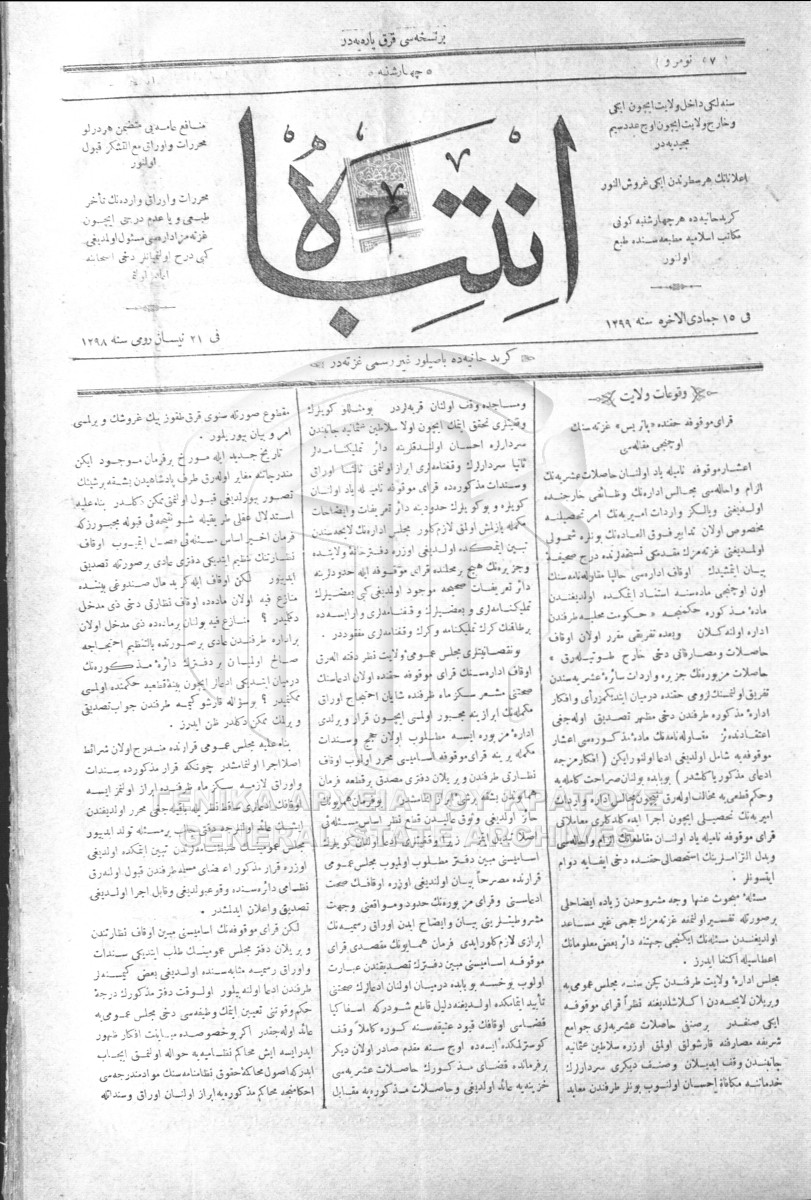 بر نسخه‌سی قرق پاره‌یه‌در
٥٧ نومرو
چهارشنبه
سنه‌لكی داخل ولایت ایچون ایكی
و خارج ولایت ایچون اوچ عدد سیم
مجیدیه‌در
اعلاناتك هر سطرندن ایكی غروش النور
كرید حانیه‌ده هر چهارشنبه كونی
مكاتب اسلامیه مطبعه‌سنده طبع
اولنور
فی ١٥ جمادی‌الاخره سنه ١٢٩٩
انتباه
منافع عامه‌یی متضمن هر درلو
محررات و اوراق مع‌التشكر قبول
اولنور
محررات و اوراق وارده‌نك تأخر
طبعی و یا عدم درجی ایچون
غزته‌مز اداره‌سی مسئول اولمدیغی
كبی درج اولنمیانلر دخی
فی ٢١ نیسان رومی سنه ١٢٩٨
كرید حانیه‌ده باصیلور غیر رسمی غزته‌در
وقوعات ولایت
قرای موقوفه حقنده «پاتریس» غزته‌سنك
اوچنجی مقاله‌سی
اعشار موقوفه نامیله یاد اولنان حاصلات عشریه‌نك
الزام و احاله‌سی مجالس اداره‌نك وظائفی خارجنده
اولدیغنی و یالكز واردات امیریه‌نك امر تحصیلنه
مخصوص اولان تدابیر فوق‌العاده‌نك بونره شمولی
اولمدیغنی غزته‌مزك مقدمكی نسخه‌لرنده درج صحیفهٔ
بیان ایتمشیدك . اوقاف اداره‌سی حالیا مقاوله‌نامه‌سنك
اون اوچنجی ماده‌سنه استناد ایتمكده اولدیغندن
مادهٔ مذكوره حكمنجه «حكومت محلیه طرفندن
اداره اولنه‌كلان و بعده تفریقی مقرر اولان اوقاف
حاصلات و مصارفاتی دخی خارج طوتیله‌رق»
حاصلات مزبوره‌نك جزیره واردات سائرهٔ عشریه‌سندن
تفریق اولنمسنك لزومی حقنده درمیان ایتدیكمز رأی و افكار
ادارهٔ مذكوره طرفندن دخی مظهر تصدیق اوله‌جغی
اعتقادنده‌ز مقاوله‌نامه‌نك مادهٔ مذكوره‌سی اعشار
موقوفه‌یه شامل اولدیغی ادعا اولنور ایكن (افكارمزجه
ادعای مذكور یاكلشدر) بوبابده بولنان صراحت كامله‌یه
و حكم قطعی‌یه مخالف اوله‌رق نیچون مجالس اداره واردات
امیریه‌نك تحصیلی ایچون اجرا ایده كلدكلری معاملاتی
قرای موقوفه نامیله یاد اولنان مقاطعاتك الزام و احاله‌سی
و بدل التزاملرینك استحصالی حقنده دخی ایفایه دوام
ایتسونلر .
مسئلهٔ مبحوث عنها وجه مشروحدن زیاده ایضاحلی
بر صورتله تفسیر اولنمغه غزته‌مزك حجمی غیر مساعد
اولدیغندن مسئله‌نك ایكنجی جهتنه دائر بعض معلوماتك
اعطاسیله اكتفا ایدرز .
مجلس ادارهٔ ولایت طرفندن كچن سنه مجلس عمومی‌یه
ویریلان لایحه‌دن اكلاشلدیغنه نظراً قرای موقوفه
ایكی صنفدر . بر صنفی حاصلات عشریه‌لری جوامع
شریفه مصارفنه قارشولق اولمق اوزره سلاطین عثمانیه
جانبندن وقف ایدیلان و صنف دیكری سردارلرك
خدماتنه مكافاةً احسان اولنوب بونلر طرفندن معابد
و مساجده وقف اولنان قریه‌لردر . بو مثللو كویلرك
وقفیتلری تحقق ایتمك ایچون اولا سلاطین عثمانیه جانبندن
سردارلره احسان اولندقلرینه دائر تملیكنامه‌لر
ثانیاً سردارلرك وقفنامه‌لری ابراز اولنمق ثالثاً اوراق
و سندات مذكوره‌ده قرای موقوفه نامیله یاد اولنان
كویلره و بو كویلرك حدودینه دائر تعریفات و ایضاحات
مكمله یازلمش اولمق لازم كلور . مجلس اداره‌نك لایحه‌سندن
تبین ایتمكده اولدیغی اوزره دفترخانهٔ ولایتده
و جزیره‌نك هیچ بر محلنده قرای موقوفه‌یه اله حدودلرینه
دائر تعریفات صحیحه موجود اولمدیغی كبی بعضیلرك
تملیكنامه‌لری و بعضیلرك وقفنامه‌لری وار ایسه‌ده
بر طاقمنك كرك تملیكنامه و كرك وقفنامه‌لری مفقوددر .
بو نقصانیتلری مجلس عمومی ولایت نظر دقته اله‌رق
اوقاف اداره‌سنك قرای موقوفه حقنده اولان ادعاسنك
صحتنی مشعر سكز ماه ظرفنده شایان احتجاج اوراق
مكمله‌نك ابرازینه مجبور اولمسی ایچون قرار ویرلدی
ادارهٔ مزبوره ایسه مطلوب اولان حجج و سندات
مكمله یرینه قرای موقوفه اسامیسی محرر اولوب اوقاف
نظارتی طرفندن ویریلان دفتری مصدق بر قطعه فرمان
همایوندن بشقه برشی ابراز ایتمامشدر . بو فرمان همایونك
حائز اولدیغی وثوق عالیدن قطع نظر اساس مسئله‌نی
اصلا تبدیل ایتمز . زیرا وقفیتلری ادعا اولنان كویلرك
اسامیسنی مبین دفتر مطلوب اولمیوب مجلس عمومی
قرارنده مصرحاً بیان اولندیغی اوزره اوقافك صحت
ادعاسنی و قرای مزبوره‌نك حدود و مواقعنی وجهت
مشروطیتلرینی بیان و ایضاح ایدن اوراق رسمیه‌نك
ابرازی لازم كلور ایدی . فرمان همایونك مقصدی قرای
موقوفه اسامیسنی مبین دفترك تصدیقندن عبارت
اولوب بو خسه بوبابده درمیان اولنان ادعالرك صحتنی
تأیید ایتمامكده اولدیغنه دلیل قاطع شودركه اسفاكیا
قضاسی اوقافك قیود عتیقه‌سنه كوره كاملاً وقف
كوسترلمكده ایسه‌ده اوچ سنه مقدم صادر اولان دیكر
بر فرمانده قضای مذكورك حاصلات عشریه‌سی
خزینه‌یه عائد اولدیغی و حاصلات مذكوره‌یه مقابل
مقطوع صورتله سنوی قرق طقوز بیك غروشك ویرلمسی
امر و بیان بیوریلور .
تاریخ جدید ایله مورخ بر فرمان موجود ایكن
مندرجاتنه مغایر اوله‌رق طرف پادشاهیدن بشقه برشینك
تصور بیورلدیغی قبول اولنمق ممكن دكلدر بناءً علیه
استدلال عقلی طریقیله شو نتیجه‌نی قبوله مجبورزكه
فرمان اخیر اساس مسئله‌نی فصل ایتمیوب اوقاف
نظارتنك تنظیم ایتدیكی دفتری عادی بر صورتله تصدیق
ایدییور لكن اوقاف ایله كرید مال صندوغی بیننده
منازع فیه اولان ماده‌ده اوقاف نظارتی دخی ذی مدخل
دكلمیدر ؟ منازع فیه بولنان بر ماده‌ده ذی مدخل اولان
بر اداره طرفندن عادی بر صورتده بالتنظیم احتجاجه
صالح اولمیان بر دفترك دائرهٔ مذكوره‌نك
درمیان ایتدیكی ادعالر ایچون بینهٔ قطعیه حكمنده اولمسی
ممكنمیدر ؟ بو سؤاله قارشو كیمسه طرفندن جواب تصدیق
ویرلمك ممكن دكلدر ظن ایدرز .
بناءً علیه مجلس عمومی قرارنده مندرج اولان شرائط
اصلا اجرا اولنمامشدر چونكه قرار مذكورده سندات
و اوراق لازمه سكز ماه ظرفنده ابراز اولنمز ایسه
اوقافك ادعاری ساقط نظر اوله
تصدیق و اعلان ایدلمشدر .
لكن قرای موقوفه‌نك اسامیسنی مبین اوقاف نظارتندن
ویریلان دفتر مجلس عمومینك طلب ایتدیكی سندات
و اوراق رسمیه مثابه‌سنده اولدیغی بعض كیمسه‌لر
طرفندن ادعا اولنه‌بیلور اولوقت دفتر مذكورك درجهٔ
حكم و قوتنی تعیین ایتمك وظیفه‌سی دخی مجلس عمومی‌یه
عائد اوله‌جقدر اكر بو خصوصده مباینت افكار ظهور
ایدر ایسه ایش محاكم نظامیه‌یه حواله اولنمق ایجاب
ایدركه اصول محاكمهٔ حقوق نظامنامه‌سنك مواد مندرجه‌سی
احكامنجه محاكم مذكوره‌یه ابراز اولنان اوراق و سنداتله
ΓΕΝΙΚΑ ΑΡΧΕΙΑ ΤΟΥ ΚΡΑΤΟΥΣ
GENERAL STATE ARCHIVES